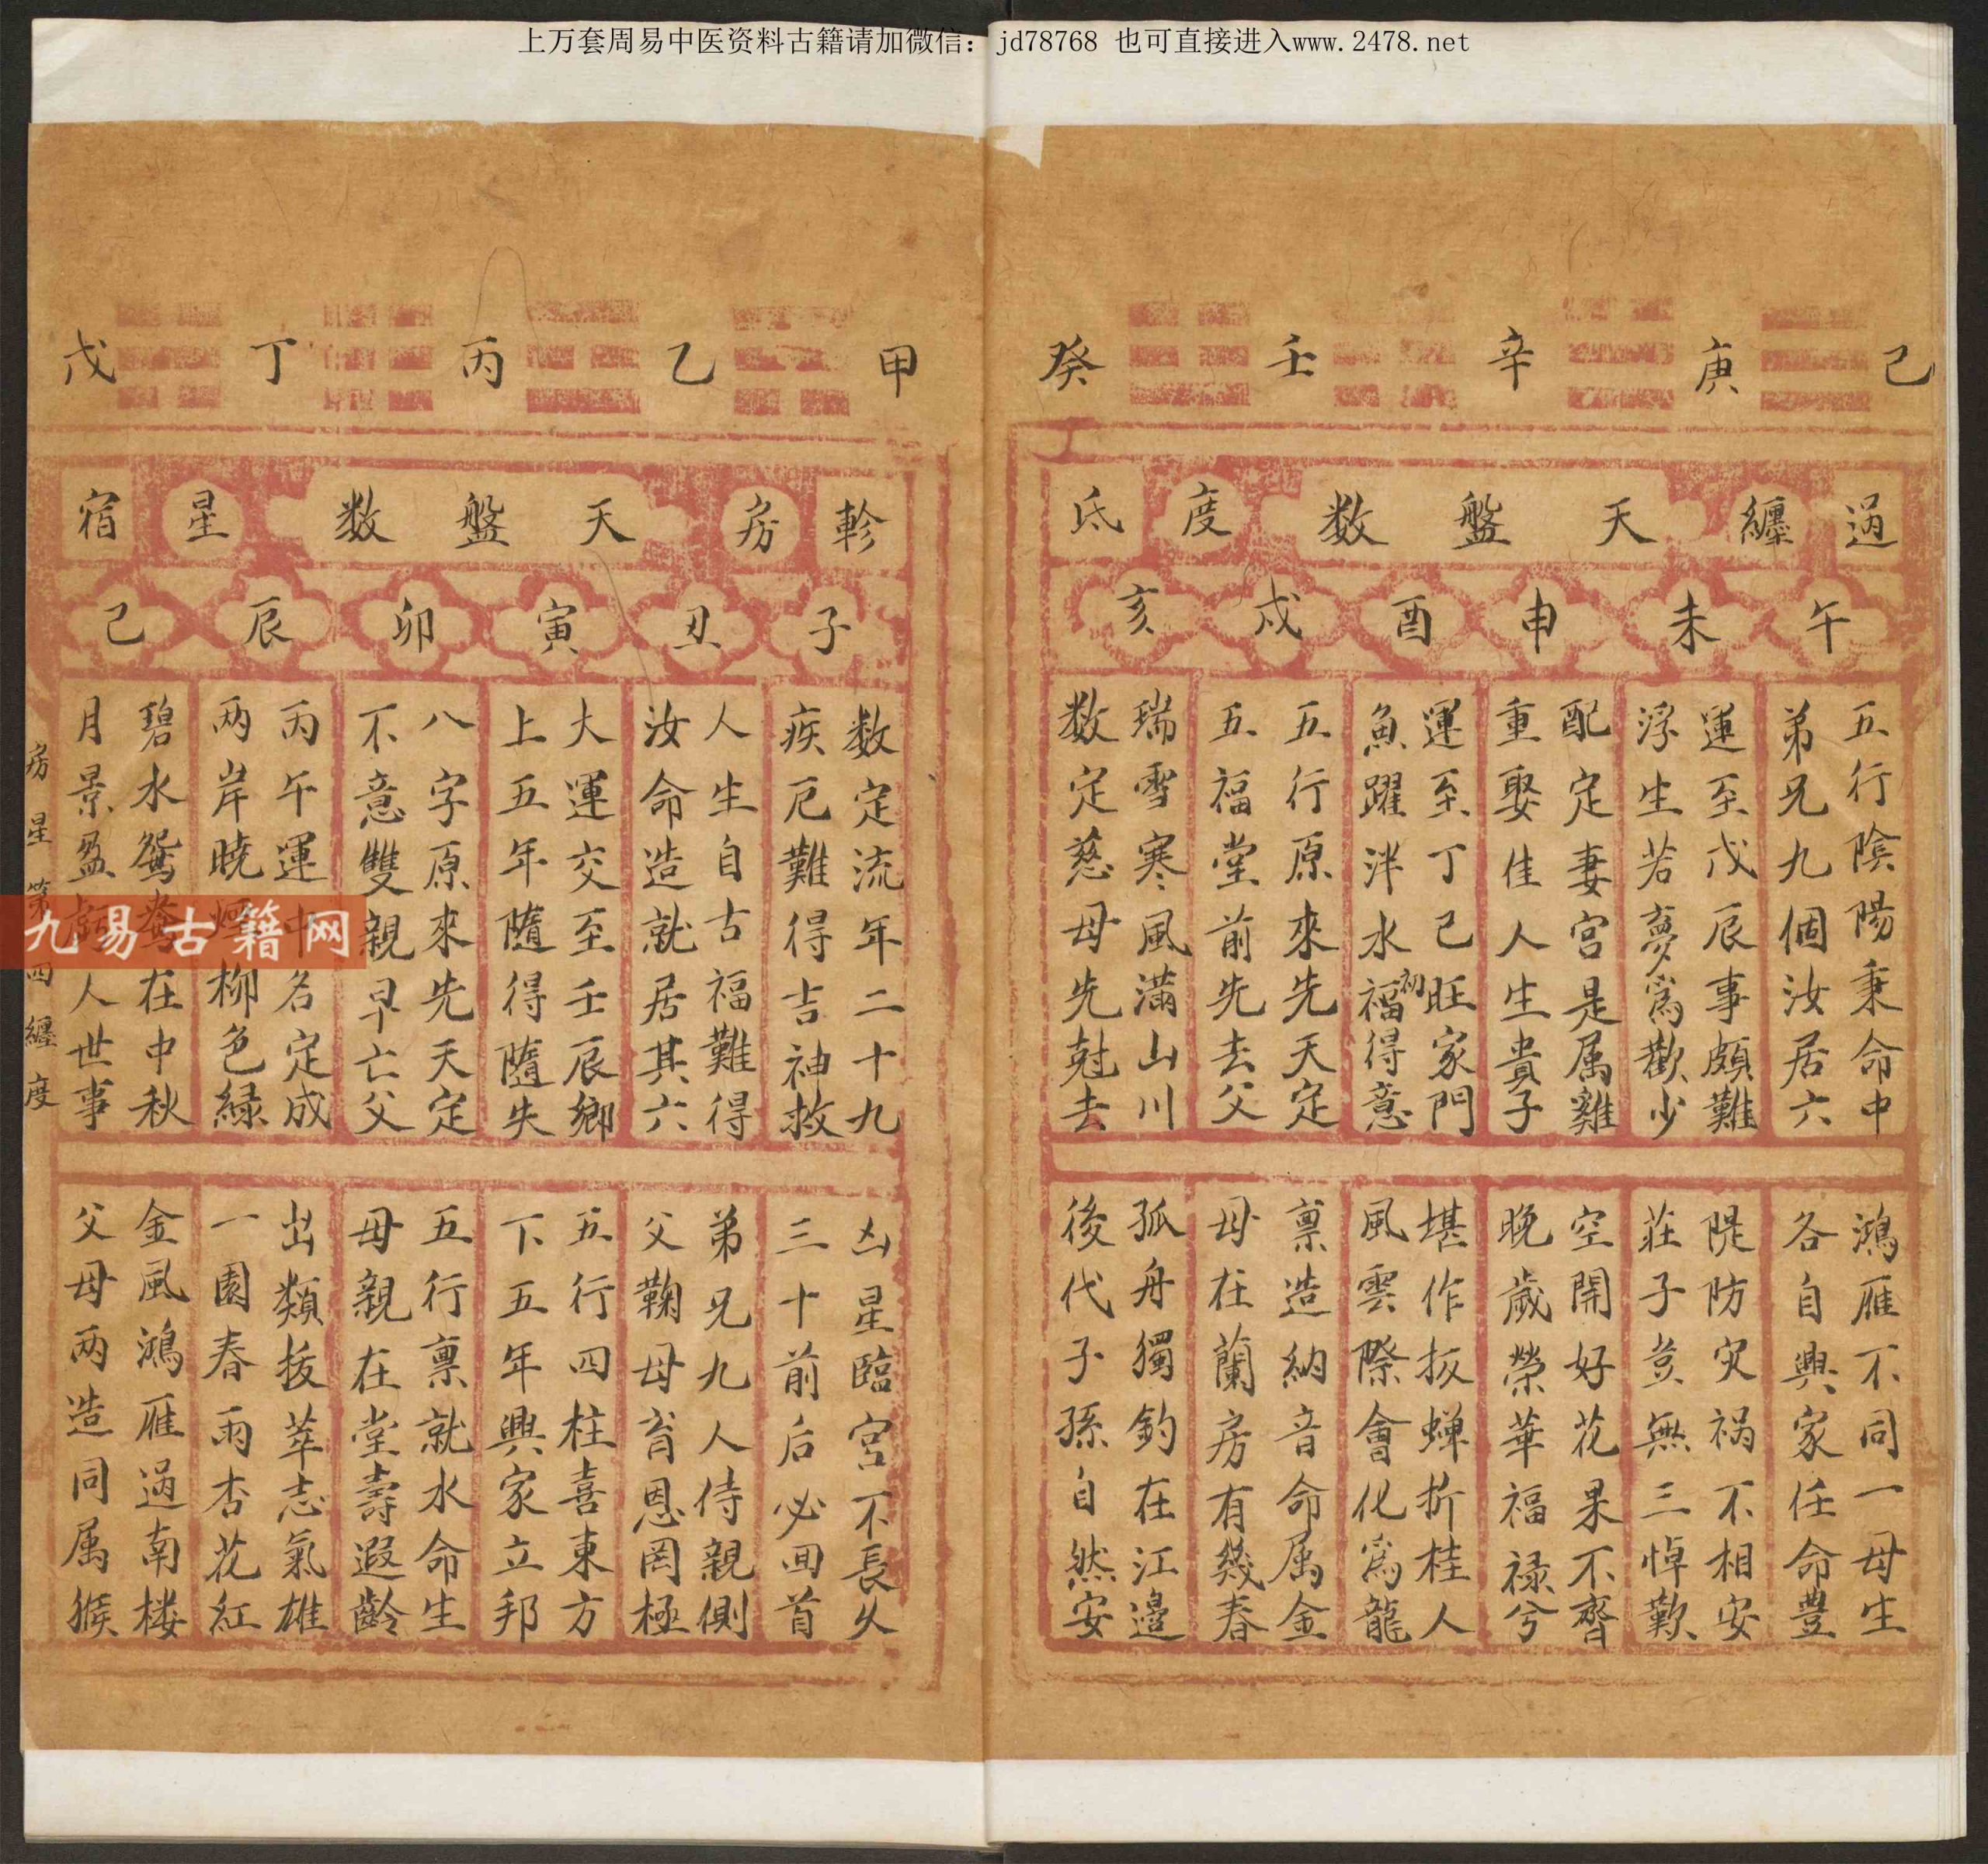 上万套周易中医资料古籍请加微信：jd78768 也可直接进入www.2478.net
己 庚 辛 壬 癸
過 纏 天 盤 数 度 氐
午 未 申 酉 戌 亥
五行陰陽秉命中
弟兄九個汝居六
鴻雁不同一母生
各自興家任命豊
運至戊辰事頗難
浮生若夢為歡少
隄防灾禍不相安
莊子豈無三悼歎
配定妻宮是属雞
重娶佳人生貴子
空開好花果不齊
晚歲榮華福禄兮
運至丁巳旺家門
魚躍泮水福初得意
堪作扳蟬折桂人
風雲際會化為龍
五行原來先天定
五福堂前先去父
禀造納音命属金
母在蘭房有幾春
瑞雪寒風滿山川
数定慈母先尅去
孤舟獨釣在江邉
後代子孫自然安
甲 乙 丙 丁 戊
軫 房 天 盤 数 星 宿
子 丑 寅 卯 辰 巳
数定流年二十九
疾厄難得吉神救
凶星臨宮不長久
三十前后必回首
人生自古福難得
汝命造就居其六
弟兄九人侍親側
父鞠母育恩罔極
大運交至壬辰鄉
上五年隨得隨失
五行四柱喜東方
下五年興家立邦
八字原來先天定
不意雙親早亡父
五行禀就水命生
母親在堂壽遐齡
丙午運中名定成
两岸曉煙柳色緑
出類拔萃志氣雄
一園春雨杏花紅
碧水鴛鴦在中秋
月景盈虧人世事
金風鴻雁過南楼
父母两造同属猴
房星第四纏度
九易古籍网